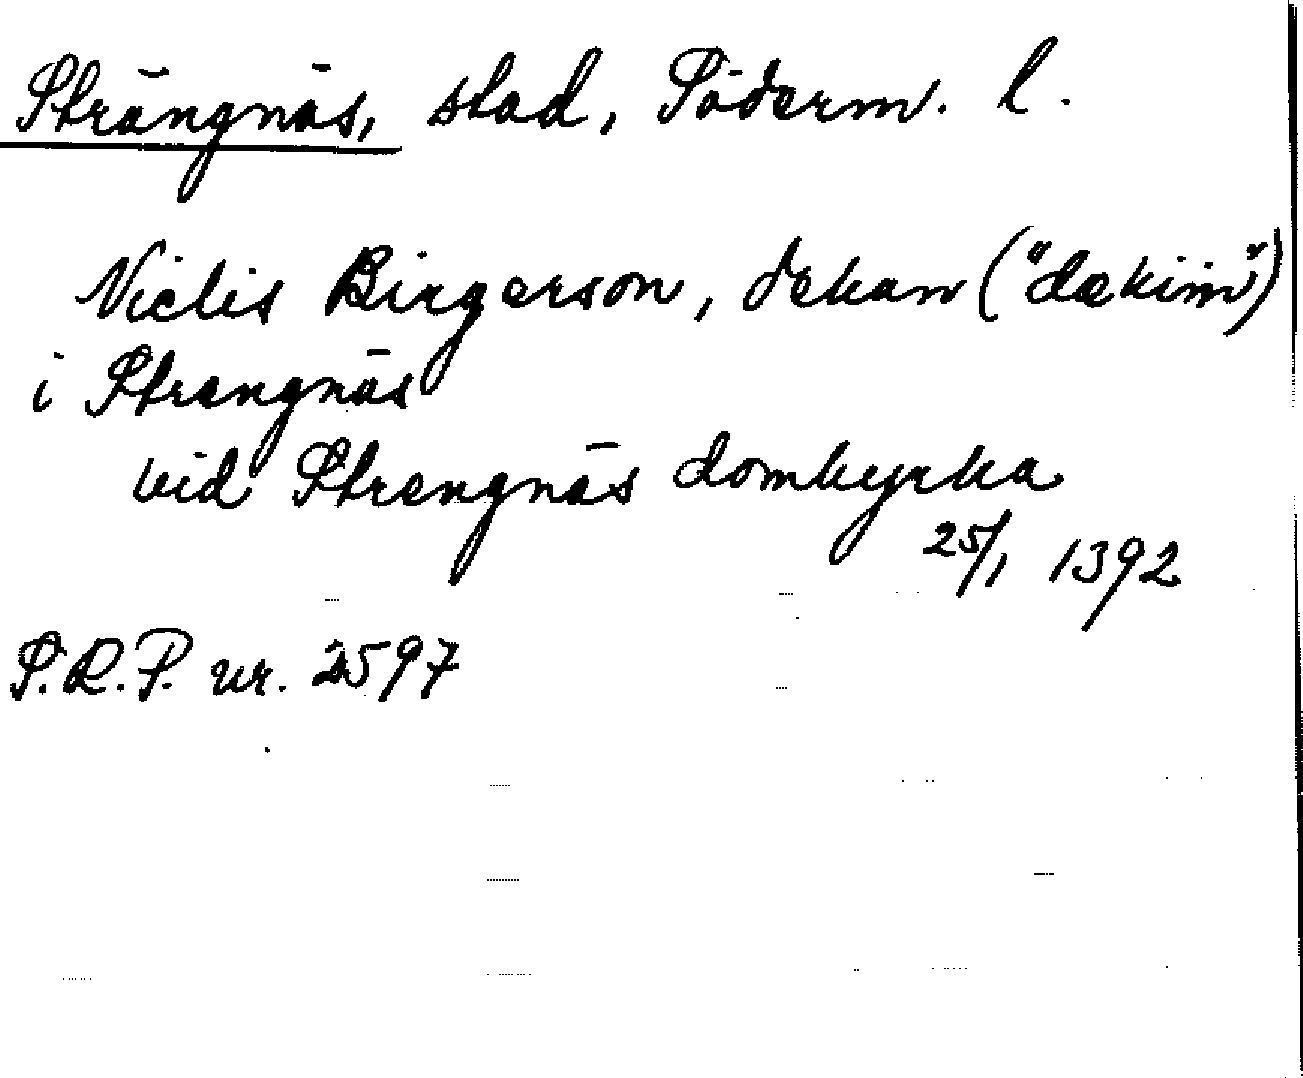 Strängnäs, stad, Söderm. l.
Niclis Birgerson, dekan ("dækiin")
i Strangnäs
vid Strengnäs domkyrka
25/1 1392
S.R.P. nr. 2597